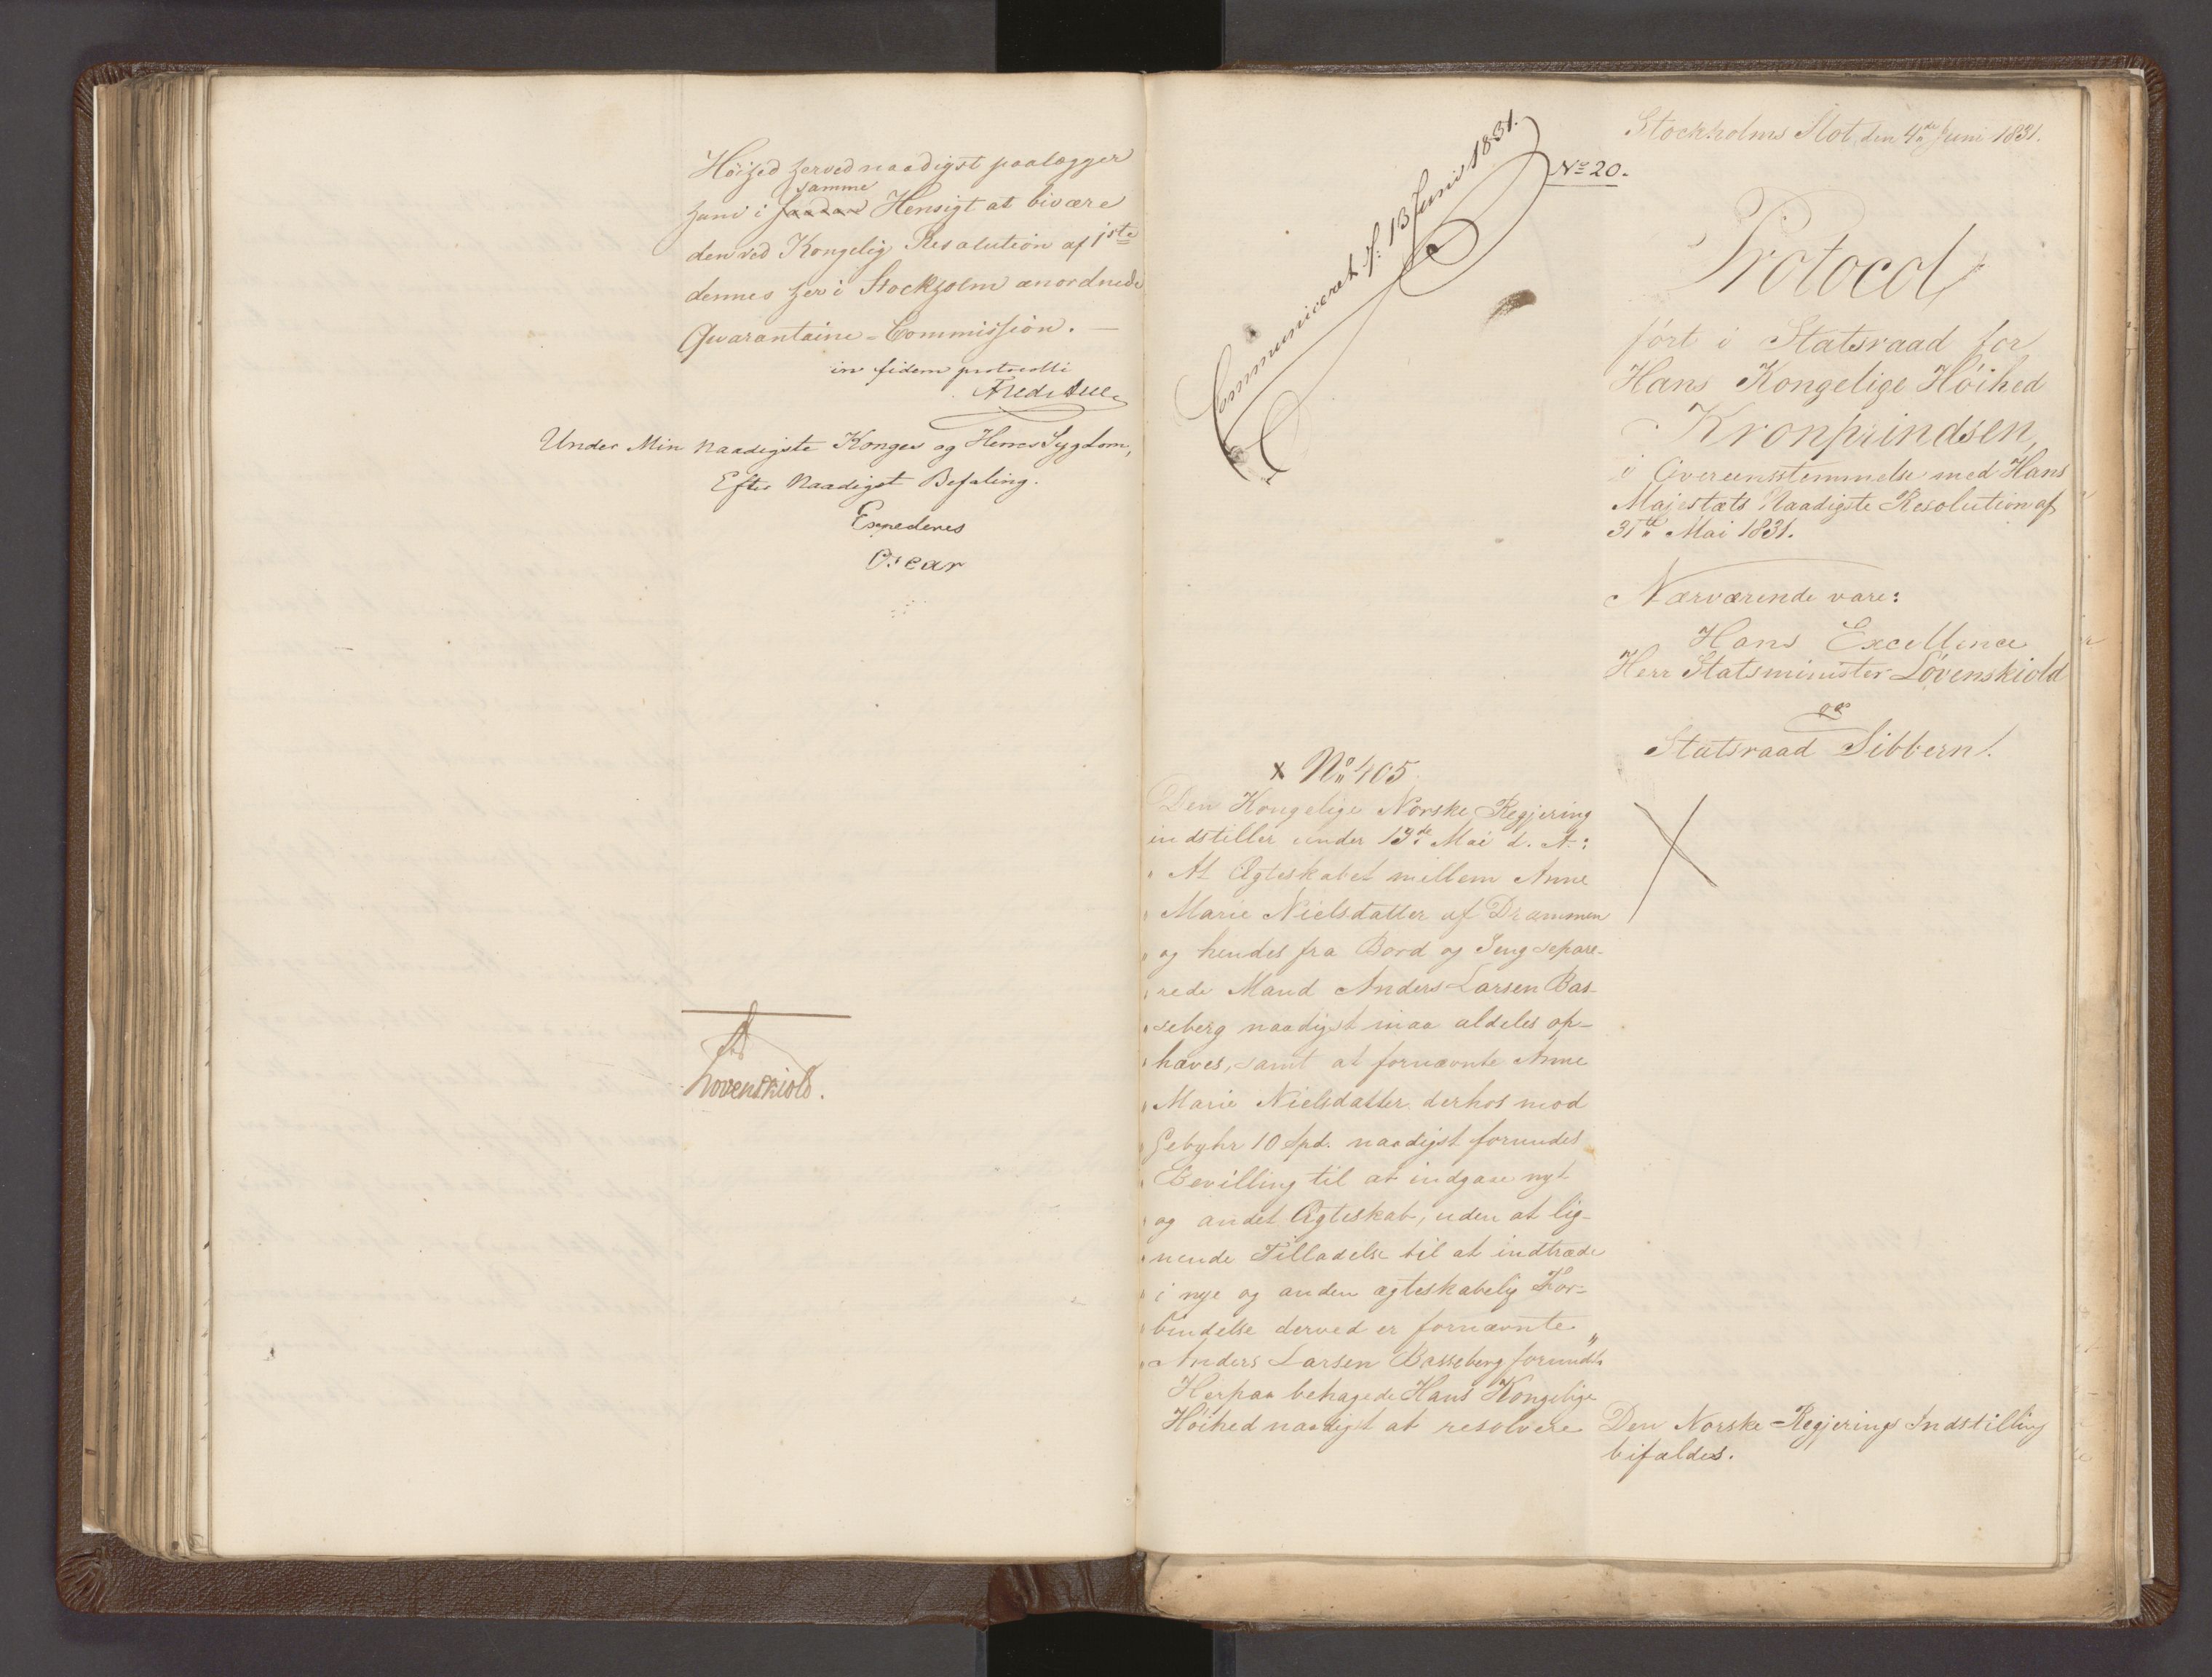 Höihed herved naadigst paalægger
ham i samme Hensigt at bivære
den ved Kongelig Resolution af 1ste
dennes her i Stockholm anordnede
Quarantaine-Commission. —
in fidem protocolli
Fredr Due
Under Min Naadigste Konges og Herres Sygdom,
Efter Naadigst Befaling.
Expederes
Oscar
Løvenskiold.
Communiceret d: 13 Junii 1831.
No 20.
Stockholms Slot, den 4de Juni 1831.
Protocol,
ført i Statsraad for
Hans Kongelige Höihed
Kronprindsen,
i Overeensstemmelse med Hans
Majestæts Naadigste Resolution af
31te Mai 1831.
Nærværende vare:
Hans Excellence
Herr Statsminister Lövenskiold
og
Statsraad Sibbern.
x No 405.
Den Kongelige Norske Regjering
indstiller under 19de Mai d. A.:
" At Ægteskabet mellem Anne
" Marie Nielsdatter af Drammen
" og hendes fra Bord og Seng separe-
" rede Mand Anders Larsen Bas-
" seberg naadigst maa aldeles op-
" hæves, samt at fornævnte Anne
" Marie Nielsdatter derhos mod
" Gebyhr 10 Spd. naadigst forundes
" Bevilling til at indgaae nyt
" og andet Ægteskab, uden at lig-
" nende Tilladelse til at indtræde
" i nye og anden ægteskabelig For-
" bindelse derved er fornævnte
" Anders Larsen Basseberg forundt."
Herpaa behagede Hans Kongelige
Höihed naadigst at resolvere
Den Norske Regjerings Indstilling
bifaldes.